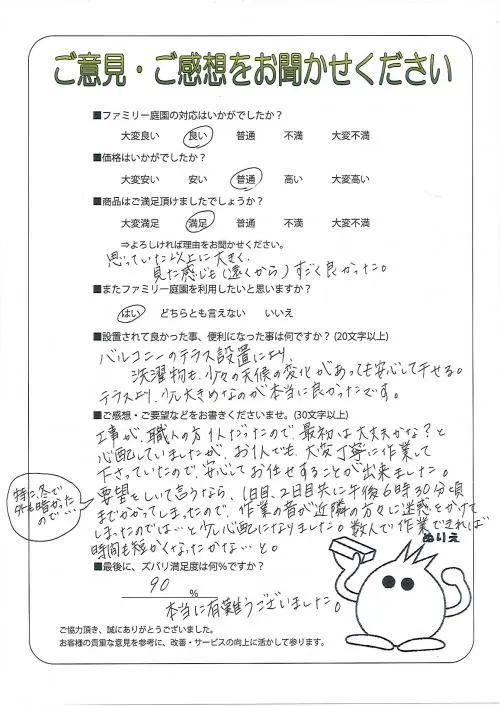 ご意見・ご感想をお聞かせください
■ファミリー庭園の対応はいかがでしたか？
大変良い 良い 普通 不満 大変不満
■価格はいかがでしたか？
大変安い 安い 普通 高い 大変高い
■商品はご満足頂けましたでしょうか？
大変満足 満足 普通 不満 大変不満
⇒よろしければ理由をお聞かせください。
思っていた以上に大きく、
見た感じも(遠くから)すごく良かった。
■またファミリー庭園を利用したいと思いますか？
はい どちらとも言えない いいえ
■設置されて良かった事、便利になった事は何ですか？(20文字以上)
バルコニーのテラス設置により、
洗濯物も、少々の天候の変化があっても安心して干せる。
テラスより、少し大きめなのが本当に良かったです。
■ご感想・ご要望などをお書きくださいませ。(30文字以上)
工事が、職人の方1人だったので、最初は大丈夫かな？と
心配していましたが、お1人でも、大変丁寧に作業して
下さっていたので、安心してお任せすることが出来ました。
要望をしいて言うなら、1日目、2日目共に午後6時30分頃
までかかってしまったので、作業の音が近隣の方々に迷惑をかけて
しまったのでは…と少し心配になりました。数人で作業できれば
時間も短かくなったかな…と。
特に、冬で
外も暗かった
ので…
ぬりえ
■最後に、ズバリ満足度は何％ですか？
90 ％
本当に有難うございました。
ご協力頂き、誠にありがとうございました。
お客様の貴重な意見を参考に、改善・サービスの向上に活かして参ります。